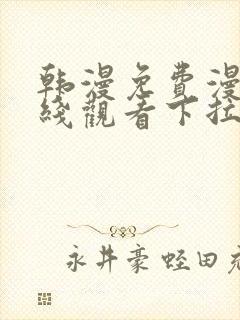 韩漫免費漫
綫觀看下拉
永井豪 蛭田充